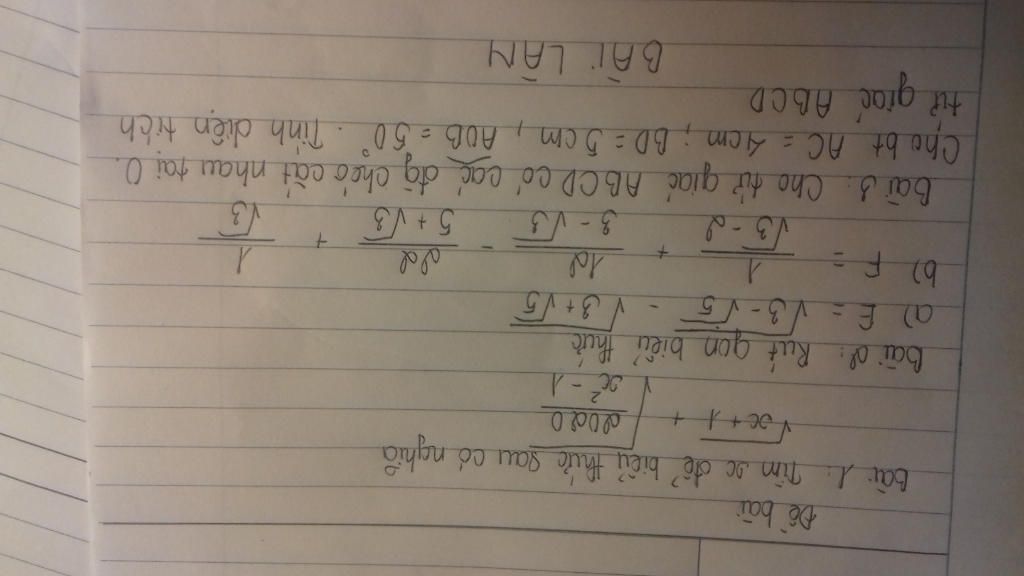 Đề bài
Bài 1: Tìm x để biểu thức sau có nghĩa
√(x + 1) + √(2020/(x² - 1))
Bài 2: Rút gọn biểu thức
a) E = √(3 - √5) - √(3 + √5)
b) F = 1/(√3 - 2) + 12/(3 - √3) - 22/(5 + √3) + 1/√3
Bài 3: Cho tứ giác ABCD có các đg chéo cắt nhau tại O.
Cho bt AC = 4cm; BD = 5cm, AOB = 50°. Tính diện tích
tứ giác ABCD
BÀI LÀM